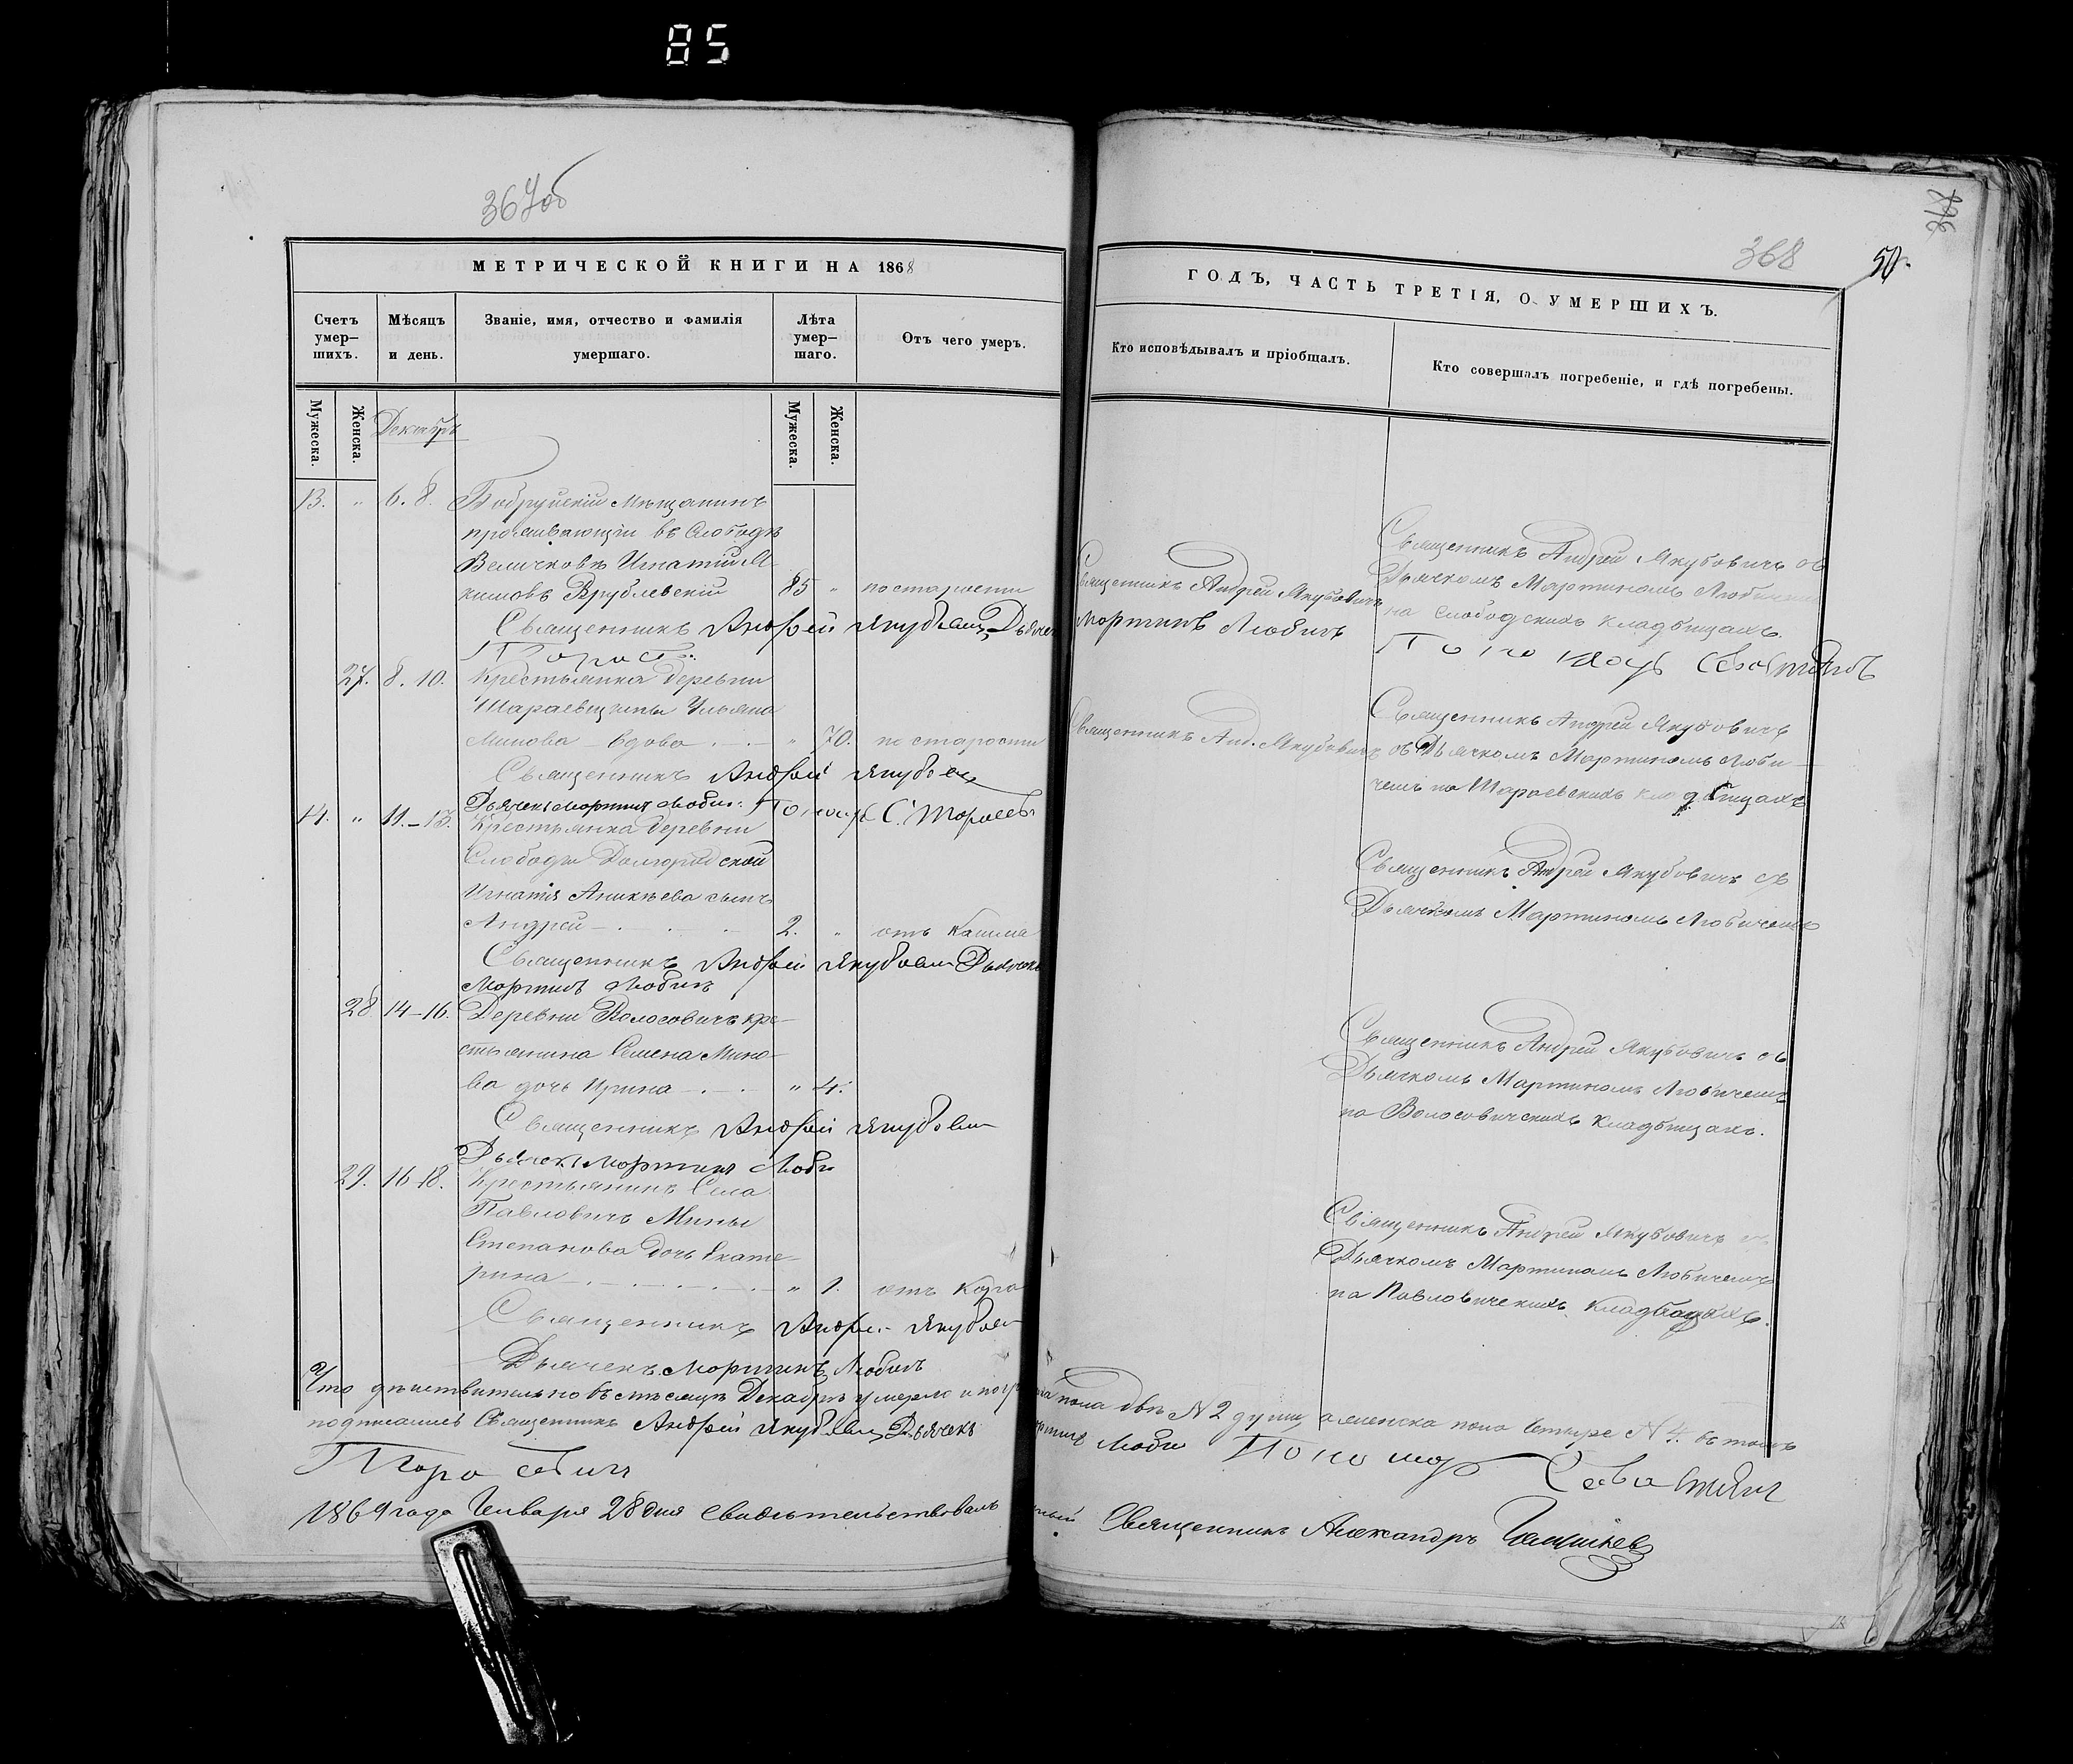 85
367об
МЕТРИЧЕСКОЙ КНИГИ НА 1868
Счетъ умер-
шихъ.
Мѣсяцъ
и день.
Званіе, имя, отчество и фамилія
умершаго.
Лѣта
умер-
шаго.
Отъ чего умеръ.
Мужеска.
Женска.
Мужеска.
Женска.
Декабрь
13. " 6. 8. Бобруйскій Мѣщанинъ
проживающій въ Слободѣ
Величковкѣ Игнатій
кимовъ Врублевскій 85 " по старости
Священникъ Андрей Якубович Дьячек
27. 8. 10. Крестьянка деревни
Шараевщины Ульяна
Минова - вдова " 70. по старости
Священникъ Андрей Якубович
Дьячекъ Мартинъ Любич
14. " 11.-13. Крестьянка деревни
Слободы
Игнатія Аникѣева сынъ
Андрей 2. " отъ Кашля
Священникъ Андрей Якубович Дьячекъ
Мартинъ Любичъ
28 14-16. Деревни Волосовичъ кре-
стьянина Семена Мино-
ва дочь Ирина " 4.
Священникъ Андрей Якубович
Дьячекъ Мартинъ Люби
29. 16-18. Крестьянинъ Села
Павловичъ Мины
Степанова дочь Екате-
рина " 1. отъ
Священникъ Андрей Якубович
Дьячекъ Мартинъ Любичъ
Что дѣйствительно въ мѣсяцѣ Декабрѣ умерло и погр
подписались Священникъ Андрей Якубович Дьячекъ
1869 года Января 28 дня свидѣтельствовалъ
368
50.
ГОДЪ, ЧАСТЬ ТРЕТІЯ, О УМЕРШИХЪ.
Кто исповѣдывалъ и пріобщалъ.
Кто совершалъ погребеніе, и гдѣ погребены.
Священникъ Андрей Якубовичъ
Мартинъ Любичъ
Священникъ Андрей Якубовичъ съ
Дьячкомъ Мартиномъ
на слободскихъ кладбищахъ.
Священникъ Анд. Якубовичъ
Священникъ Андрей Якубовичъ
съ Дьячкомъ Мартиномъ Люби-
чемъ на Шараевскихъ кладбищахъ
Священникъ Андрей Якубовичъ съ
Дьячкомъ Мартиномъ Любичемъ
Священникъ Андрей Якубовичъ съ
Дьячкомъ Мартиномъ Любичемъ
на Волосовичскихъ кладбищахъ.
Священникъ Андрей Якубовичъ
Дьячкомъ Мартиномъ Любичемъ
на Павловичскихъ кладбищахъ.
пола двѣ N 2 души, а женска пола четыре N 4. въ томъ
Священникъ Александръ